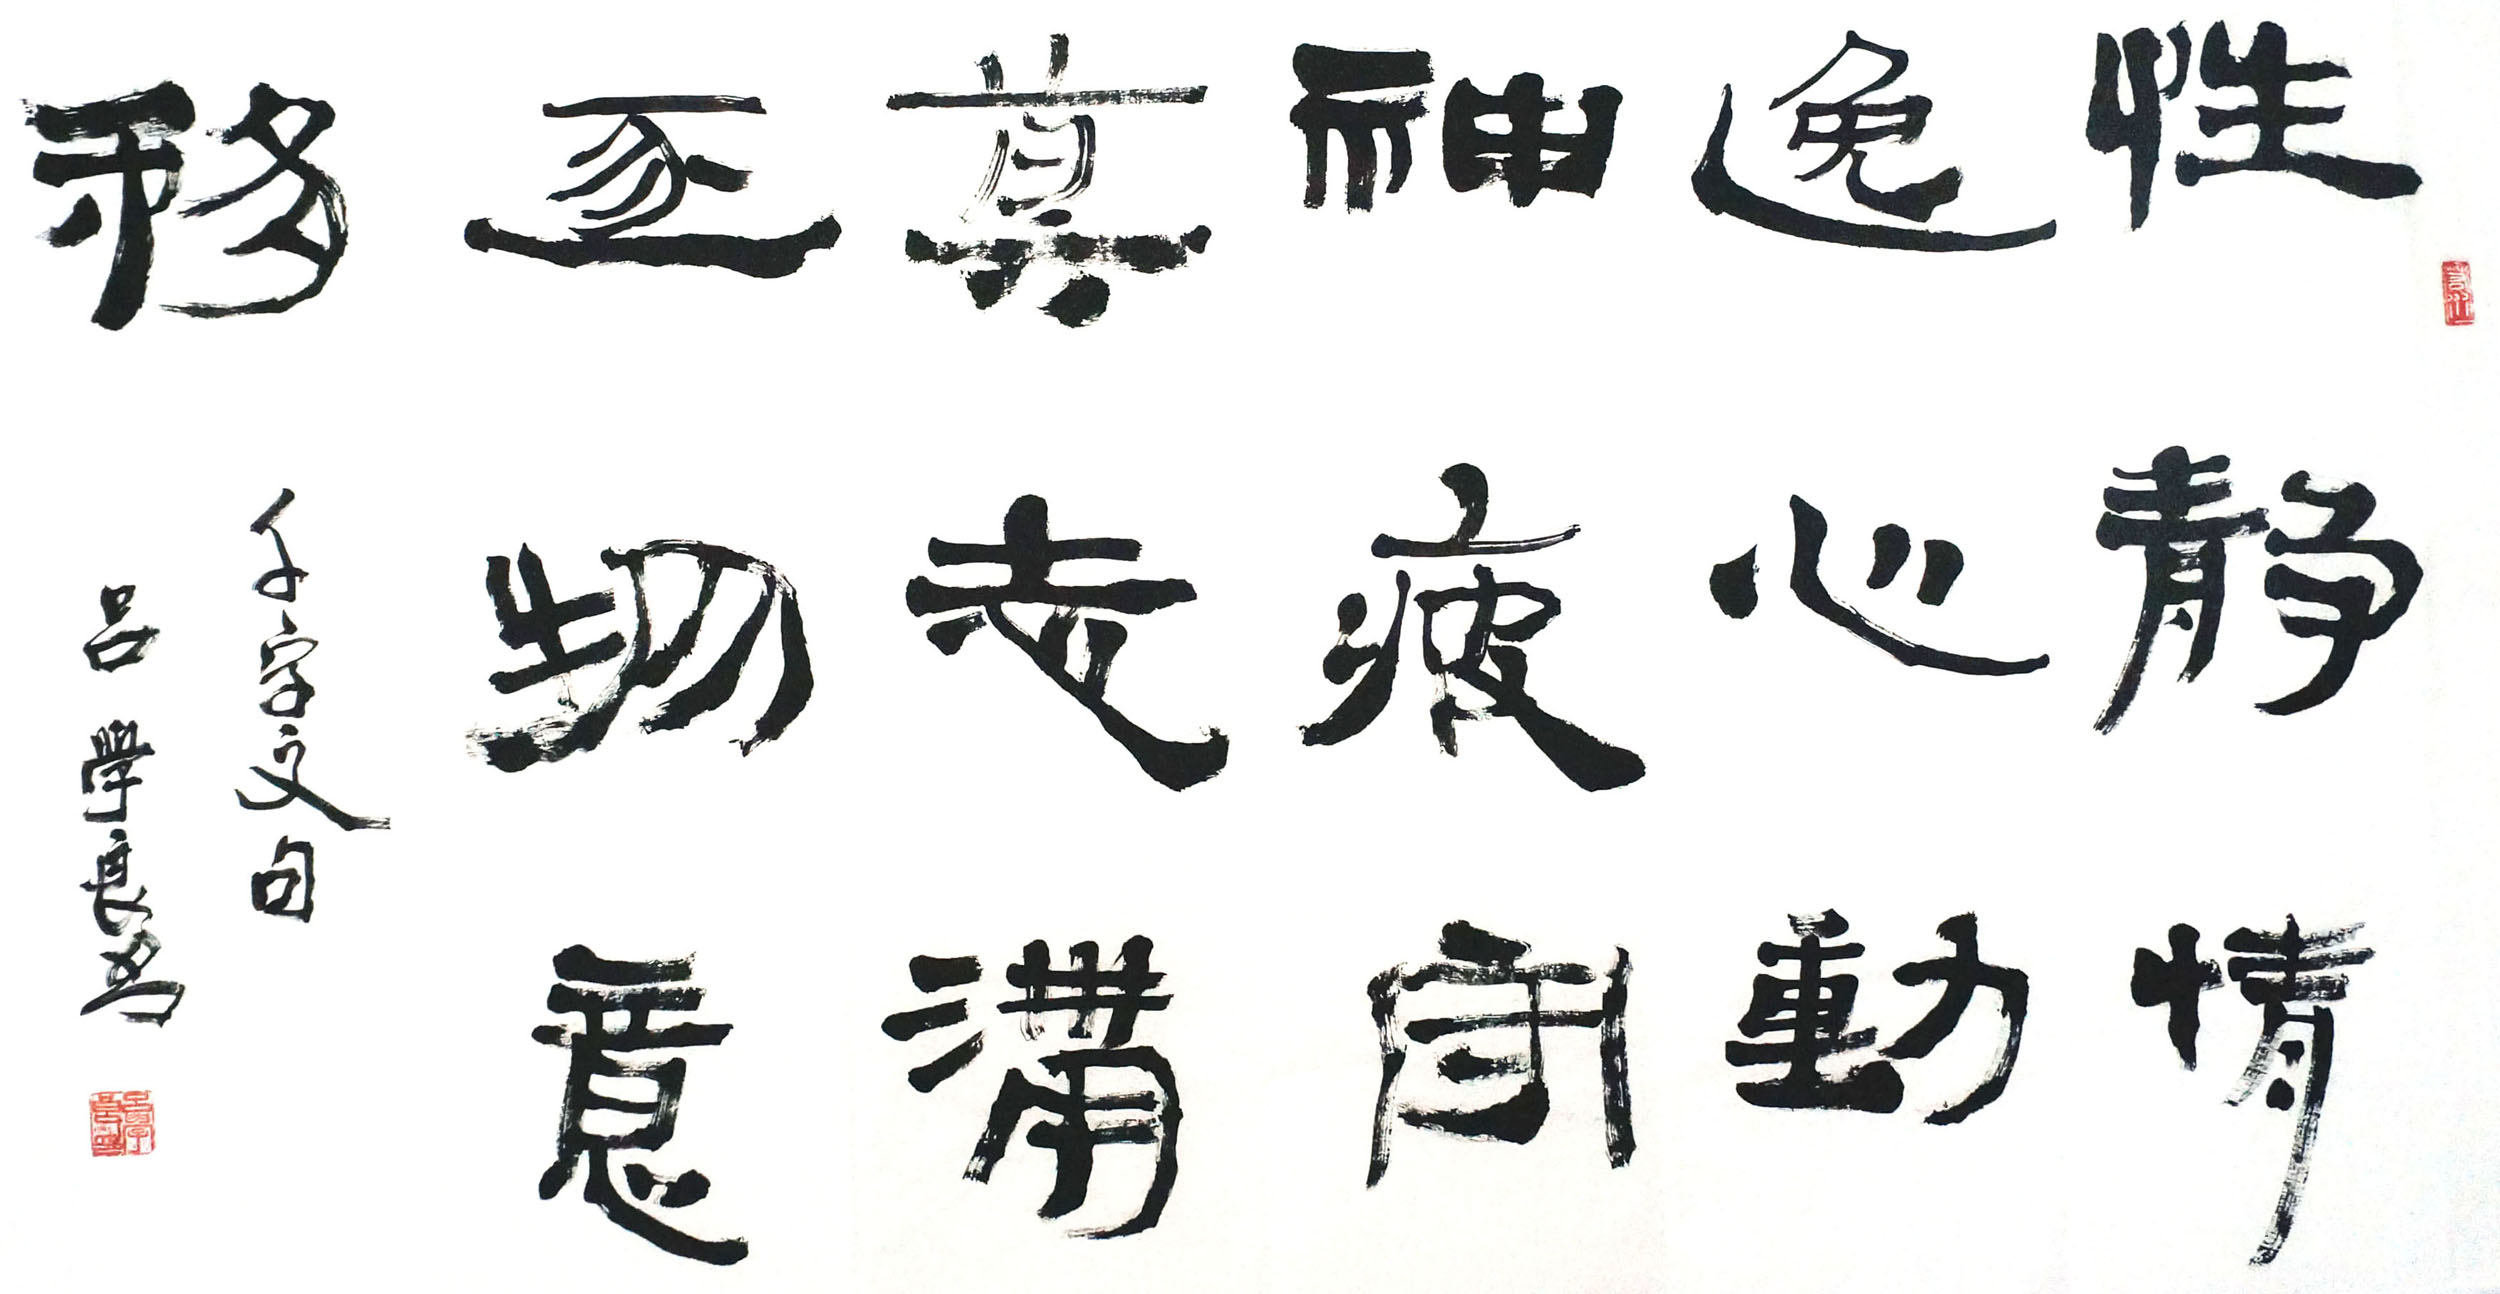 性静情
逸心動
神疲守
真志滿
逐物意
移
千字文句
吕學良书